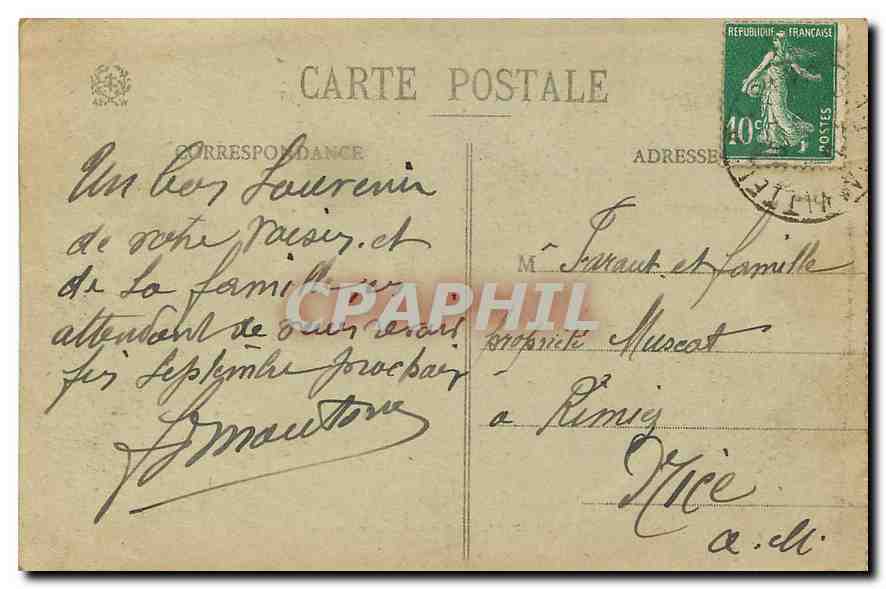 CARTE POSTALE
CORRESPONDANCE
ADRESSE
REPUBLIQUE FRANÇAISE
10c
POSTES
Un bon Souvenir
de votre Voisin et
de la famille en
attendant de vous revoir
fin Septembre prochain
Mr Faraut et famille
propriété Muscat
à Rimiez
Nice
a. M.
CPAPHIL